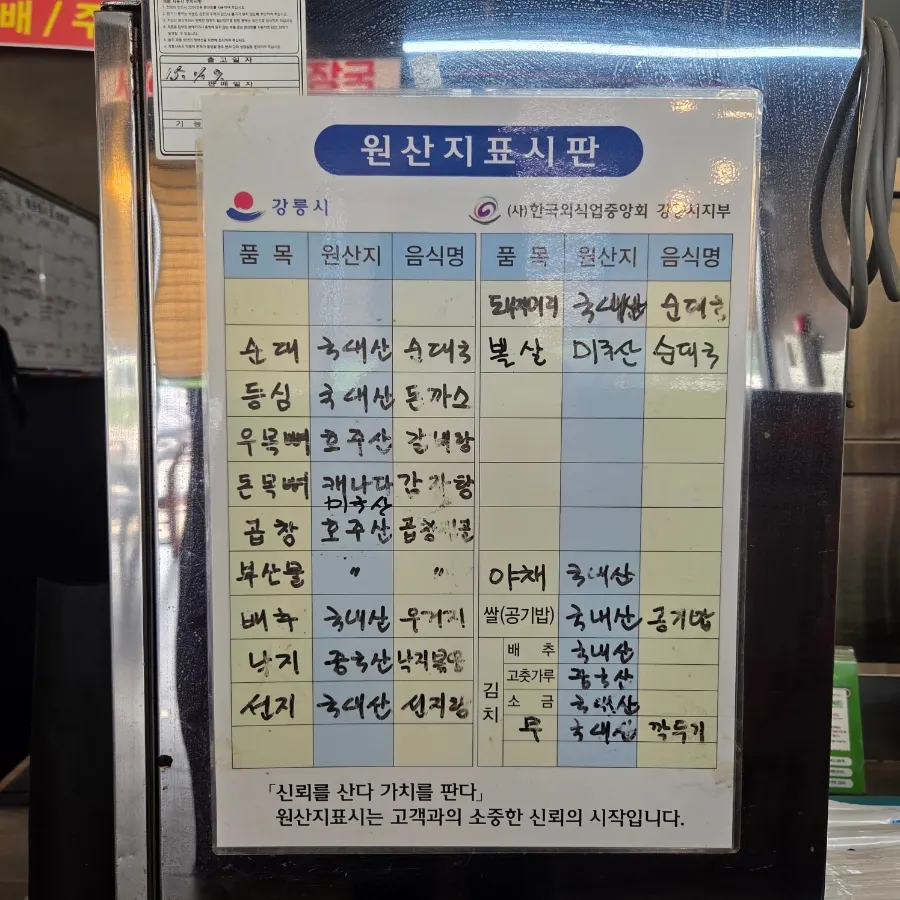 배/주
출고일자
판매일자
원산지표시판
강릉시
(사)한국외식업중앙회 강릉시지부
품목 원산지 음식명
순대 국내산 순대국
등심 국내산 돈까스
우목뼈 호주산 갈비탕
돈목뼈 캐나다 감자탕
미국산
곱창 호주산 곱창전골
부산물 〃 〃
배추 국내산 우거지
낙지 중국산 낙지볶음
선지 국내산 선지탕
품목 원산지 음식명
돼지머리 국내산 순대국
볼살 미국산 순대국
야채 국내산
쌀(공기밥) 국내산 공기밥
김치
배추 국내산
고춧가루 중국산
소금 국내산
무 국내산 깍두기
「신뢰를 산다 가치를 판다」
원산지표시는 고객과의 소중한 신뢰의 시작입니다.